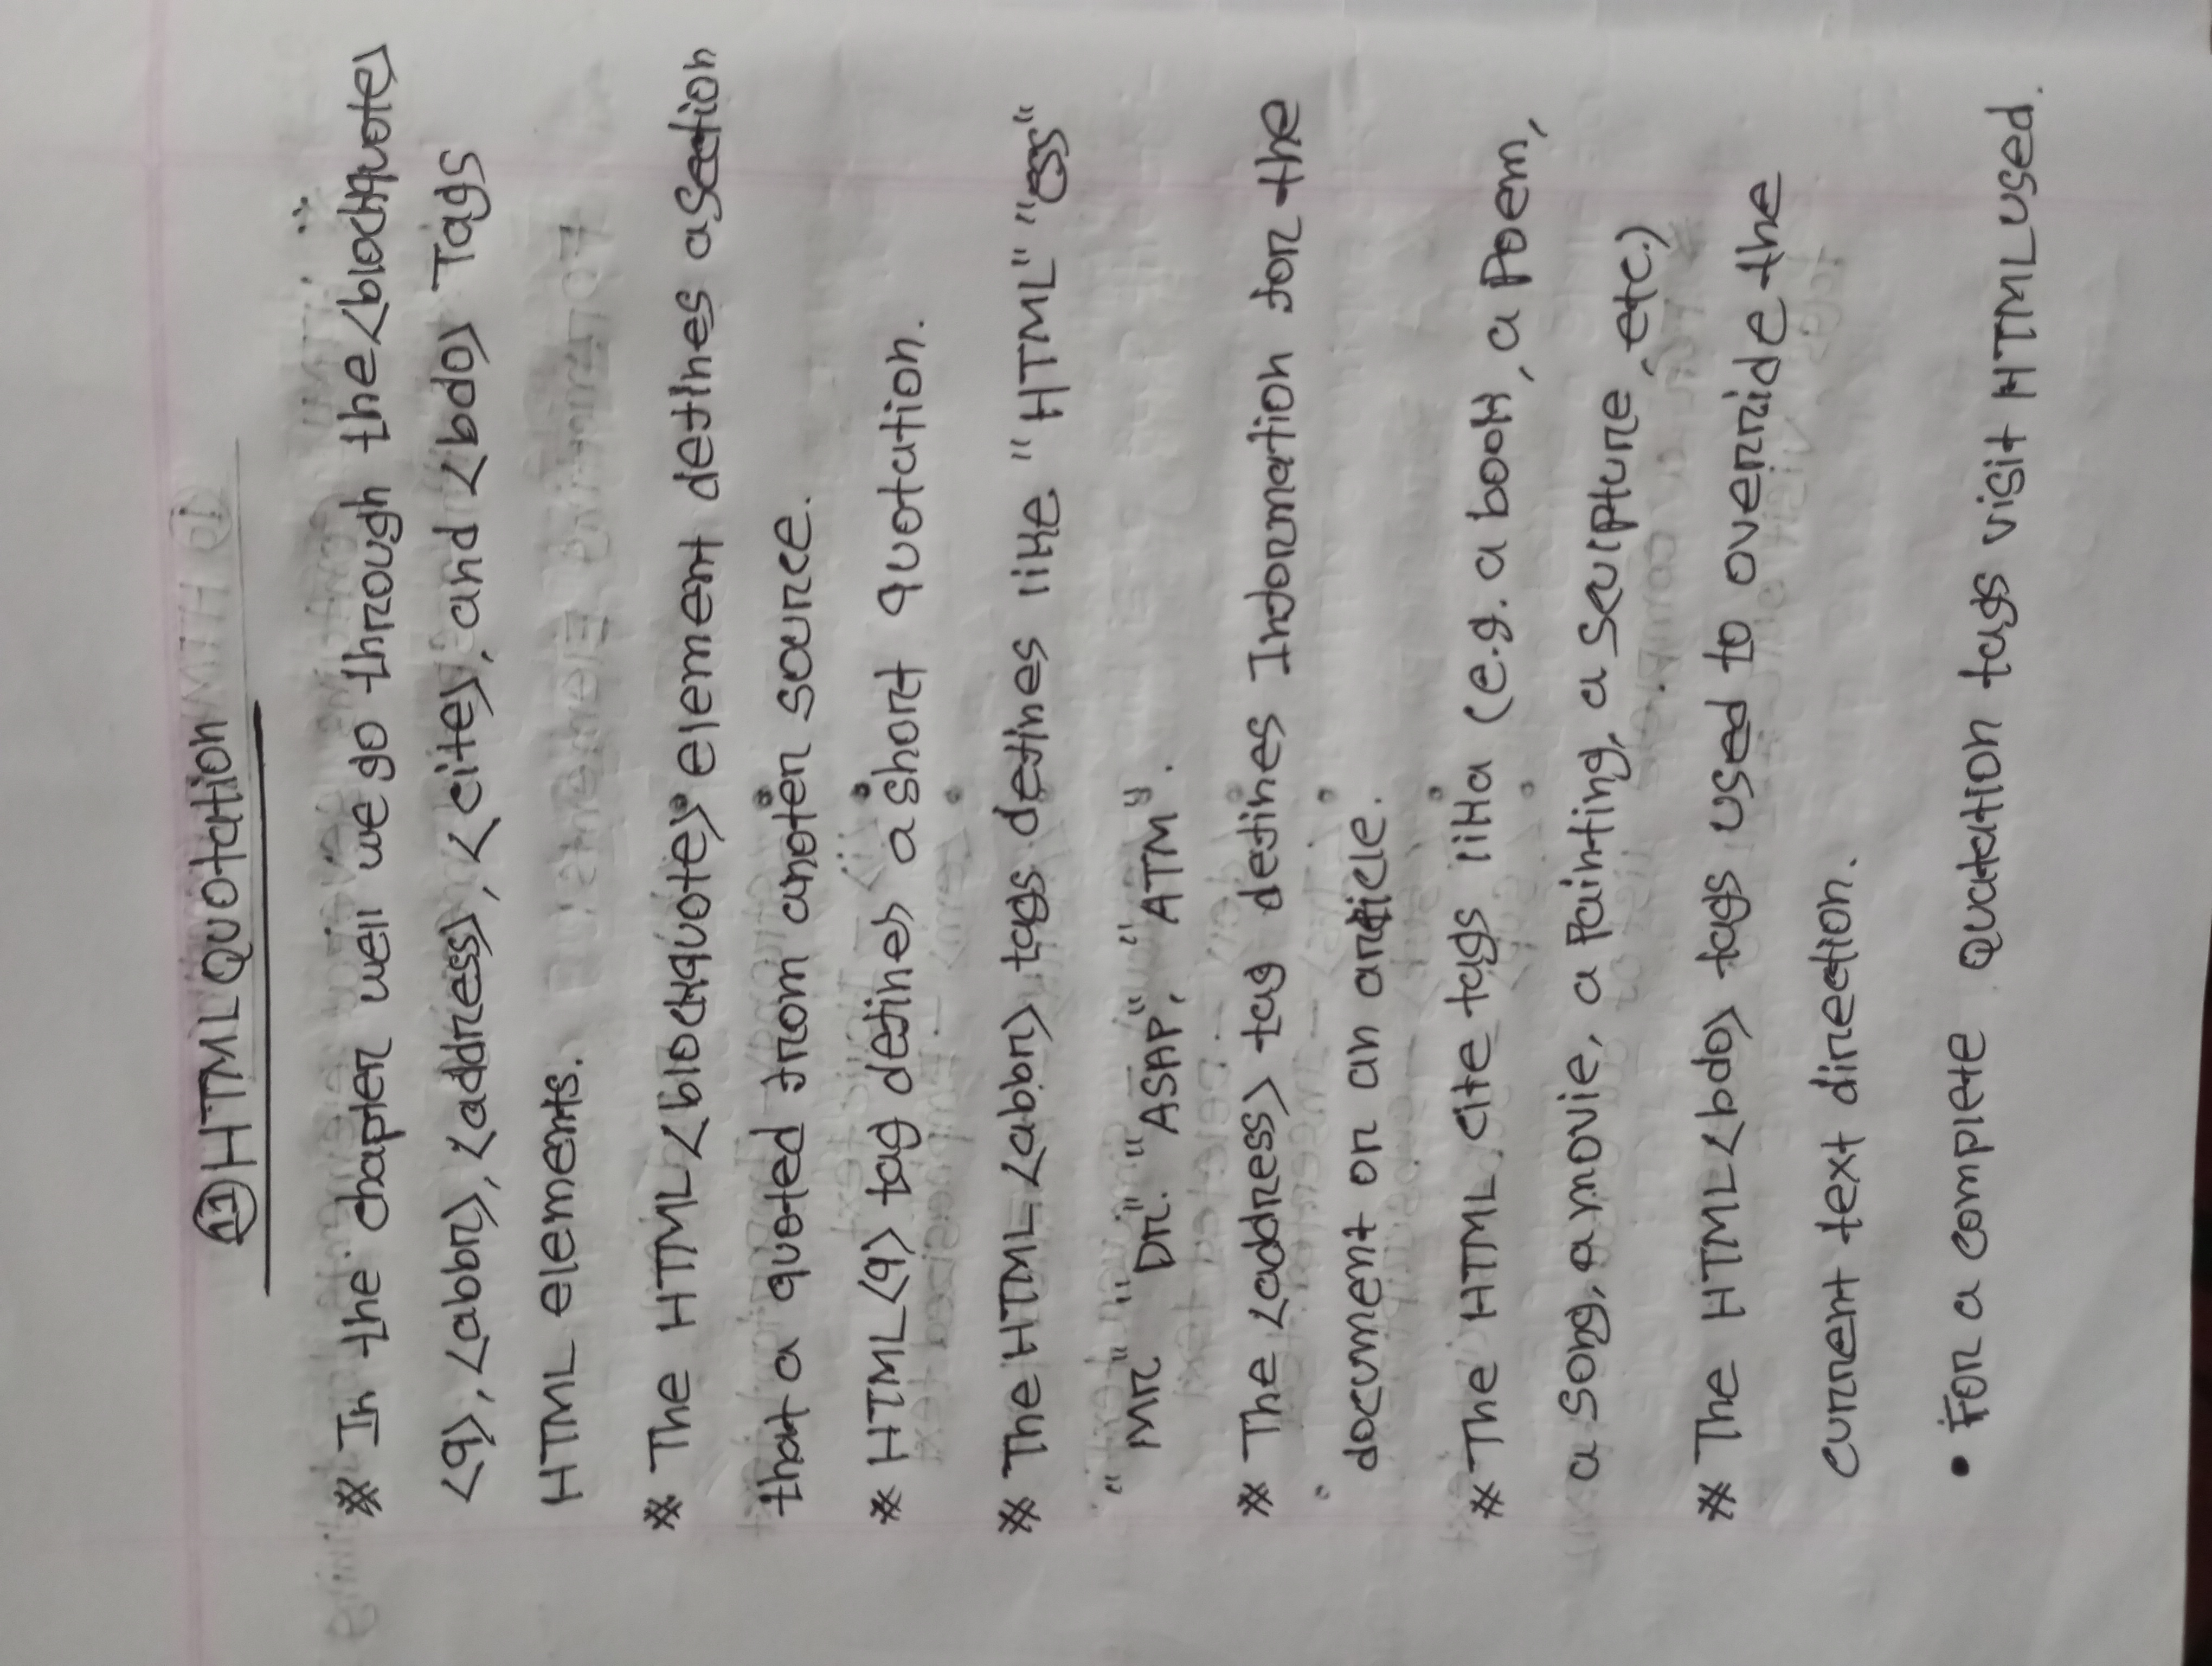 11 HTML Quotation
* In the chapter well we go through the <blockquote>
<q>, <abbr>, <address>, <cite>, and <bdo> Tags
HTML elements.
* The HTML <blockquote> element defines a section
that a quoted from anoter source.
* HTML <q> tag defines a short quotation.
* The HTML <abbr> tags defines like "HTML" "css"
"Mr." "Dr". "ASAP", "ATM".
* The <address> tag defines Information for the
document or an article.
* The HTML cite tags lika (e.g. a book, a Poem,
a song, a movie, a Painting, a sculpture, etc.)
* The HTML <bdo> tags used to override the
current text direction.
• For a complete Quatation tags visit HTML used.